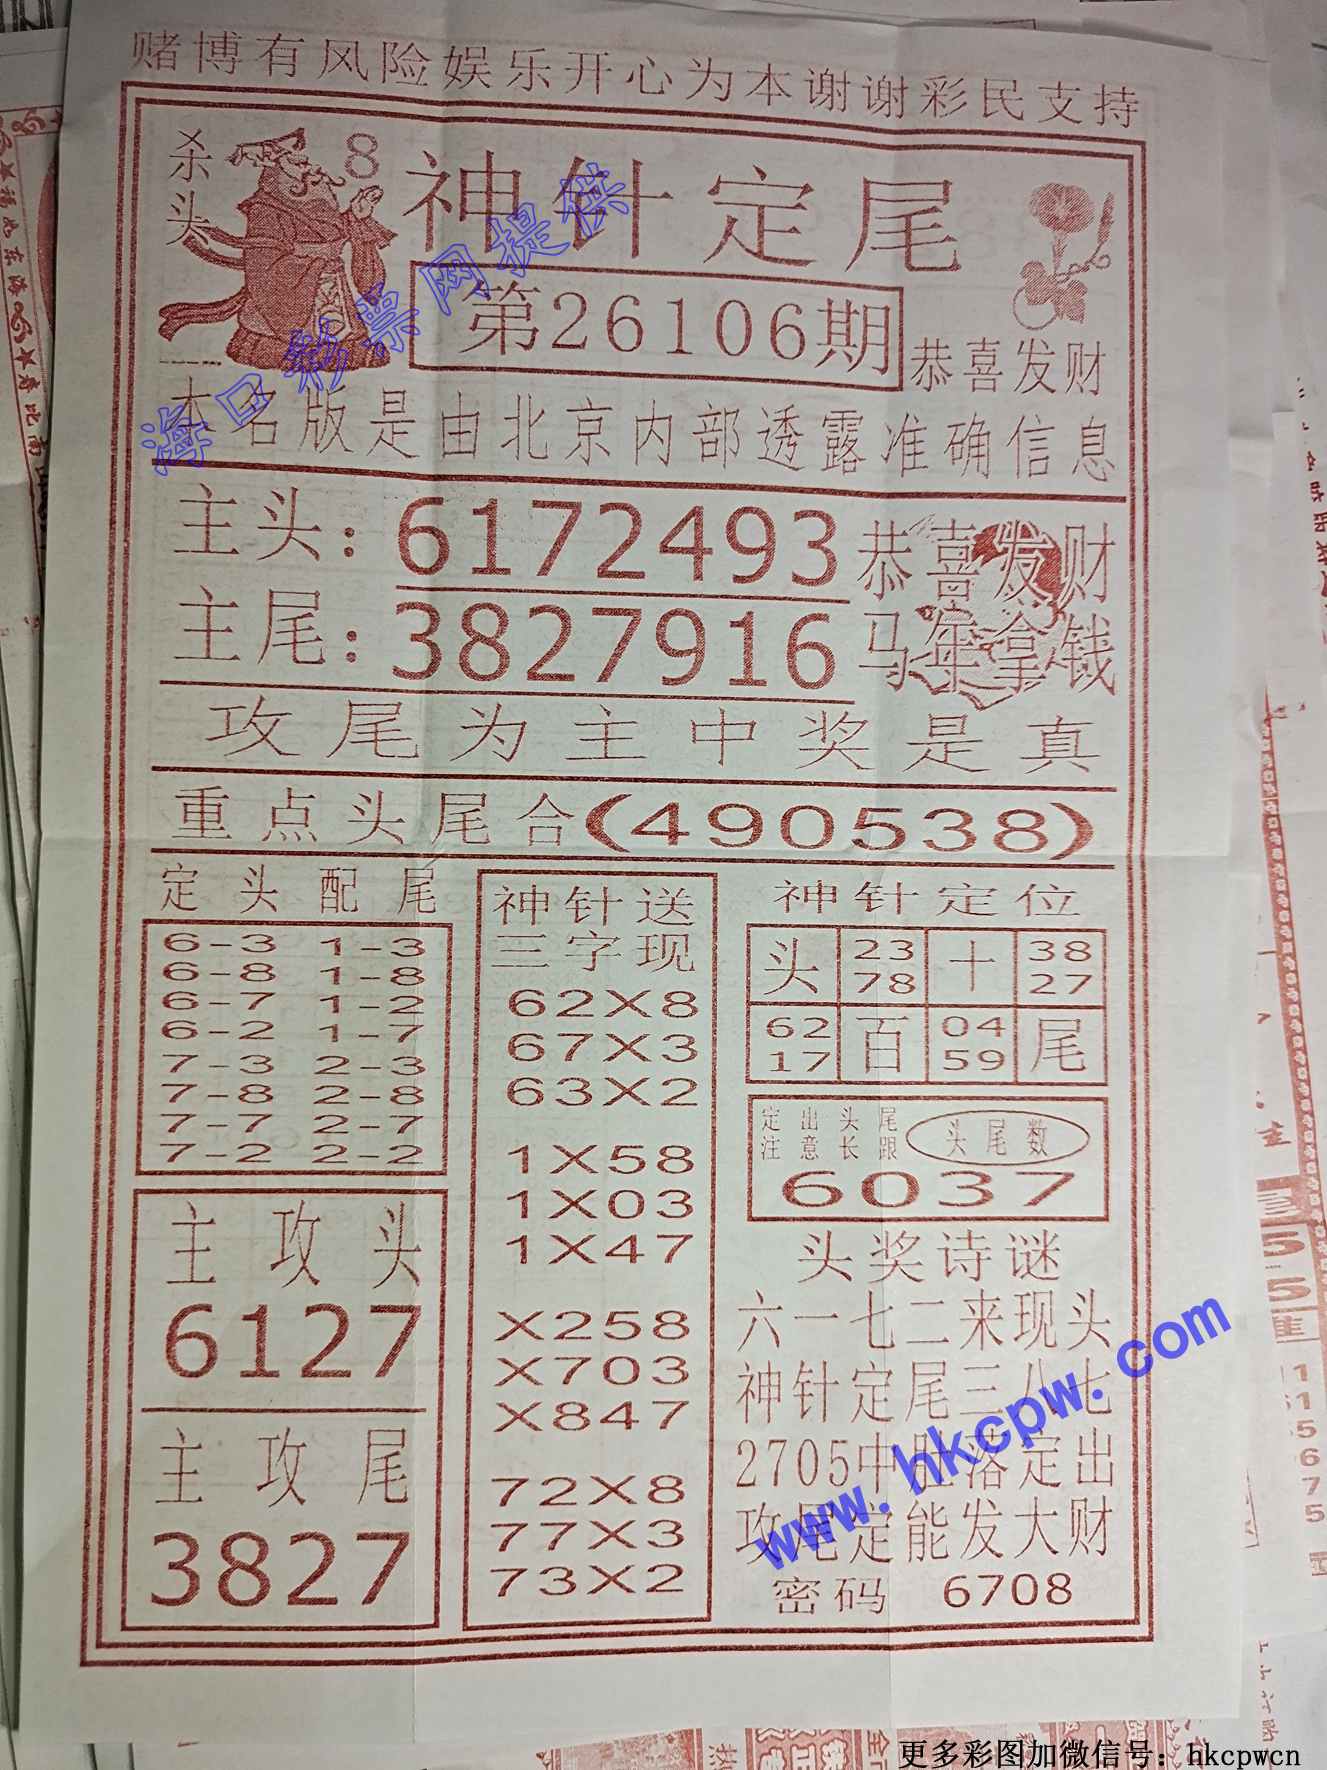 赌博有风险娱乐开心为本谢谢彩民支持
杀头 8
神针定尾
第26106期
恭喜发财
海口彩票网提供
本名版是由北京内部透露准确信息
主头：6172493
主尾：3827916
恭喜发财
马年拿钱
攻尾为主中奖是真
重点头尾合(490538)
定头配尾
6-3 1-3
6-8 1-8
6-7 1-2
6-2 1-7
7-3 2-3
7-8 2-8
7-7 2-7
7-2 2-2
主攻头
6127
主攻尾
3827
神针送
三字现
62X8
67X3
63X2
1X58
1X03
1X47
X258
X703
X847
72X8
77X3
73X2
神针定位
头 23 十 38
78 27
62 百 04 尾
17 59
定出头尾
注意长跟
头尾数
6037
头奖诗谜
六一七二来现头
神针定尾三八七
2705中肚落定出
攻尾定能发大财
密码 6708
www.hkcpw.com
更多彩图加微信号：hkcpwcn